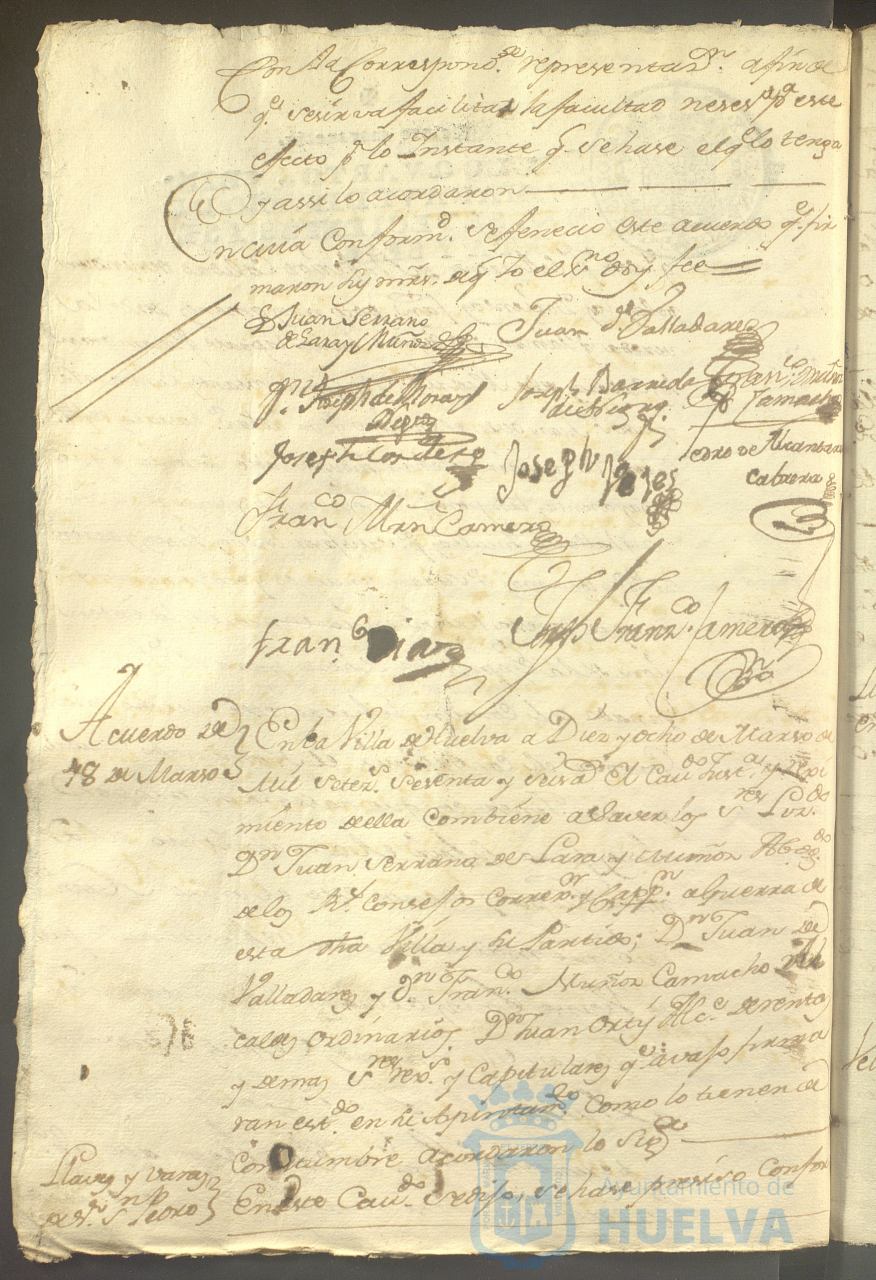 Con la Correspond.te representaz.n a fin de
q.e se sirva facilitar la facultad neses.a p.a este
efecto p.r lo Instante q. se hase el q.e lo tenga
y assi lo acordaron
En cuia Conform.d se fenecio este acuerdo q.e fir
maron sus mrds. de q. Yo el ss.no doy fee
D. Juan Serrano
de Lara y Muñoz
Juan de Valladares
Joseph Barreda
Fran.co Muñoz
Camacho
Joseph Cordero
Joseph
Pedro de Alcantara
Cabrera
Fran.co Mrn Camero
Fran.co Diaz
Franz.co Camero
ss.no
Acuerdo de
18 de Marzo
En la Villa de Huelva a Diez y ocho de Marzo de
Mil setez.s sesenta y seis a.s El Cav.do Just.a y Rexi
miento de ella combiene a saver los S.res Liz.do
D.n Juan Serrano de Lara y Muñoz Abog.do
de los R.s Consejos Correx.or y Capp.n a Guerra de
esta dha Villa y su Partido; D.n Juan de
Valladares y d.n Fran.co Muñoz Camacho Al
caldes ordinarios, D.n Juan Ortiz Alc.e de renta
y demas S.res rex.s y Capitulares q.e avajo firma
ran est.do en su Ayuntam.to como lo tienen de
Costumbre acordaron lo sig.te
Llaves y varas
de S.n Pedro
En este Cav.do se dijo, se hase presiso Confor
Ayuntamiento de
HUELVA